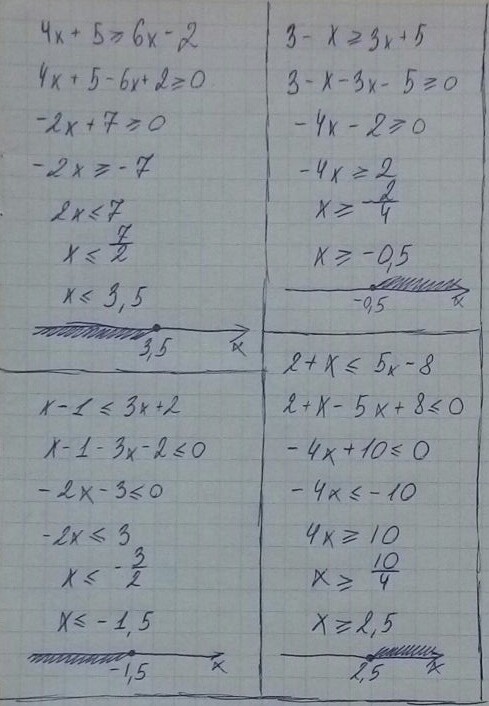 4x + 5 ≥ 6x - 2
4x + 5 - 6x + 2 ≥ 0
-2x + 7 ≥ 0
-2x ≥ -7
2x ≤ 7
x ≤ 7/2
x ≤ 3,5
3,5 x
3 - x ≥ 3x + 5
3 - x - 3x - 5 ≥ 0
-4x - 2 ≥ 0
-4x ≥ 2
x ≥ -2/4
x ≥ -0,5
-0,5 x
x - 1 ≤ 3x + 2
x - 1 - 3x - 2 ≤ 0
-2x - 3 ≤ 0
-2x ≤ 3
x ≤ -3/2
x ≤ -1,5
-1,5 x
2 + x ≤ 5x - 8
2 + x - 5x + 8 ≤ 0
-4x + 10 ≤ 0
-4x ≤ -10
4x ≥ 10
x ≥ 10/4
x ≥ 2,5
2,5 x